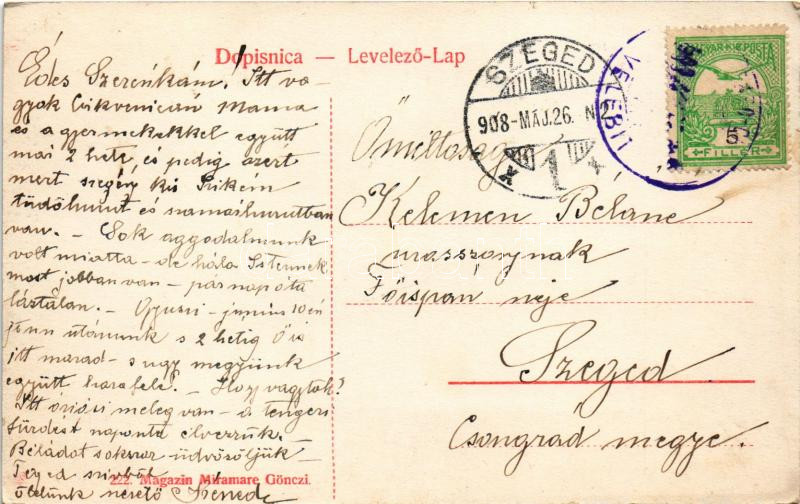 Dopisnica — Levelező-Lap
Édes Szerénkám! Itt va-
gyok Czikvenicán Mama
és a gyermekekkel együtt
mai 2 hete, és pedig azért
mert szegény kis Czikém
tüdőhurut és hurutban
van. — Sok aggodalmunk
volt miatta — de hála Istennek
most jobban van — pár nap óta
láztalan. — Gyuri — június 10én
jönn utánunk s 2 hétig Ő is
itt marad — s ugy megyünk
együtt hazafelé. — Hogy vagytok?
Itt óriási meleg van — a tengeri
fürdést naponta élvezzük. —
Béládat sokszor üdvözöljük —
Téged szivből
ölelünk szerető Iréned
222. Magazin Miramare Gönczi.
SZEGED
908-MÁJ.26. N2
1
VELEBIT
MAGYAR KIR. POSTA
5
FILLÉR
Őméltósága
Kelemen Béláné
urasszonynak
Főispán neje
Szeged
Csongrád megye.